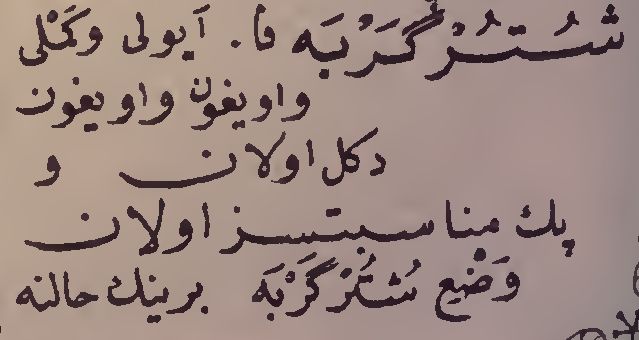 شُتُرْگُرْبَه فا. آيولى وكَمْلى
واويغون واويغون
دكل اولان و
پك مناسبتسز اولان
وَضْعِ شُتُرْگُرْبَه برينك حالنه